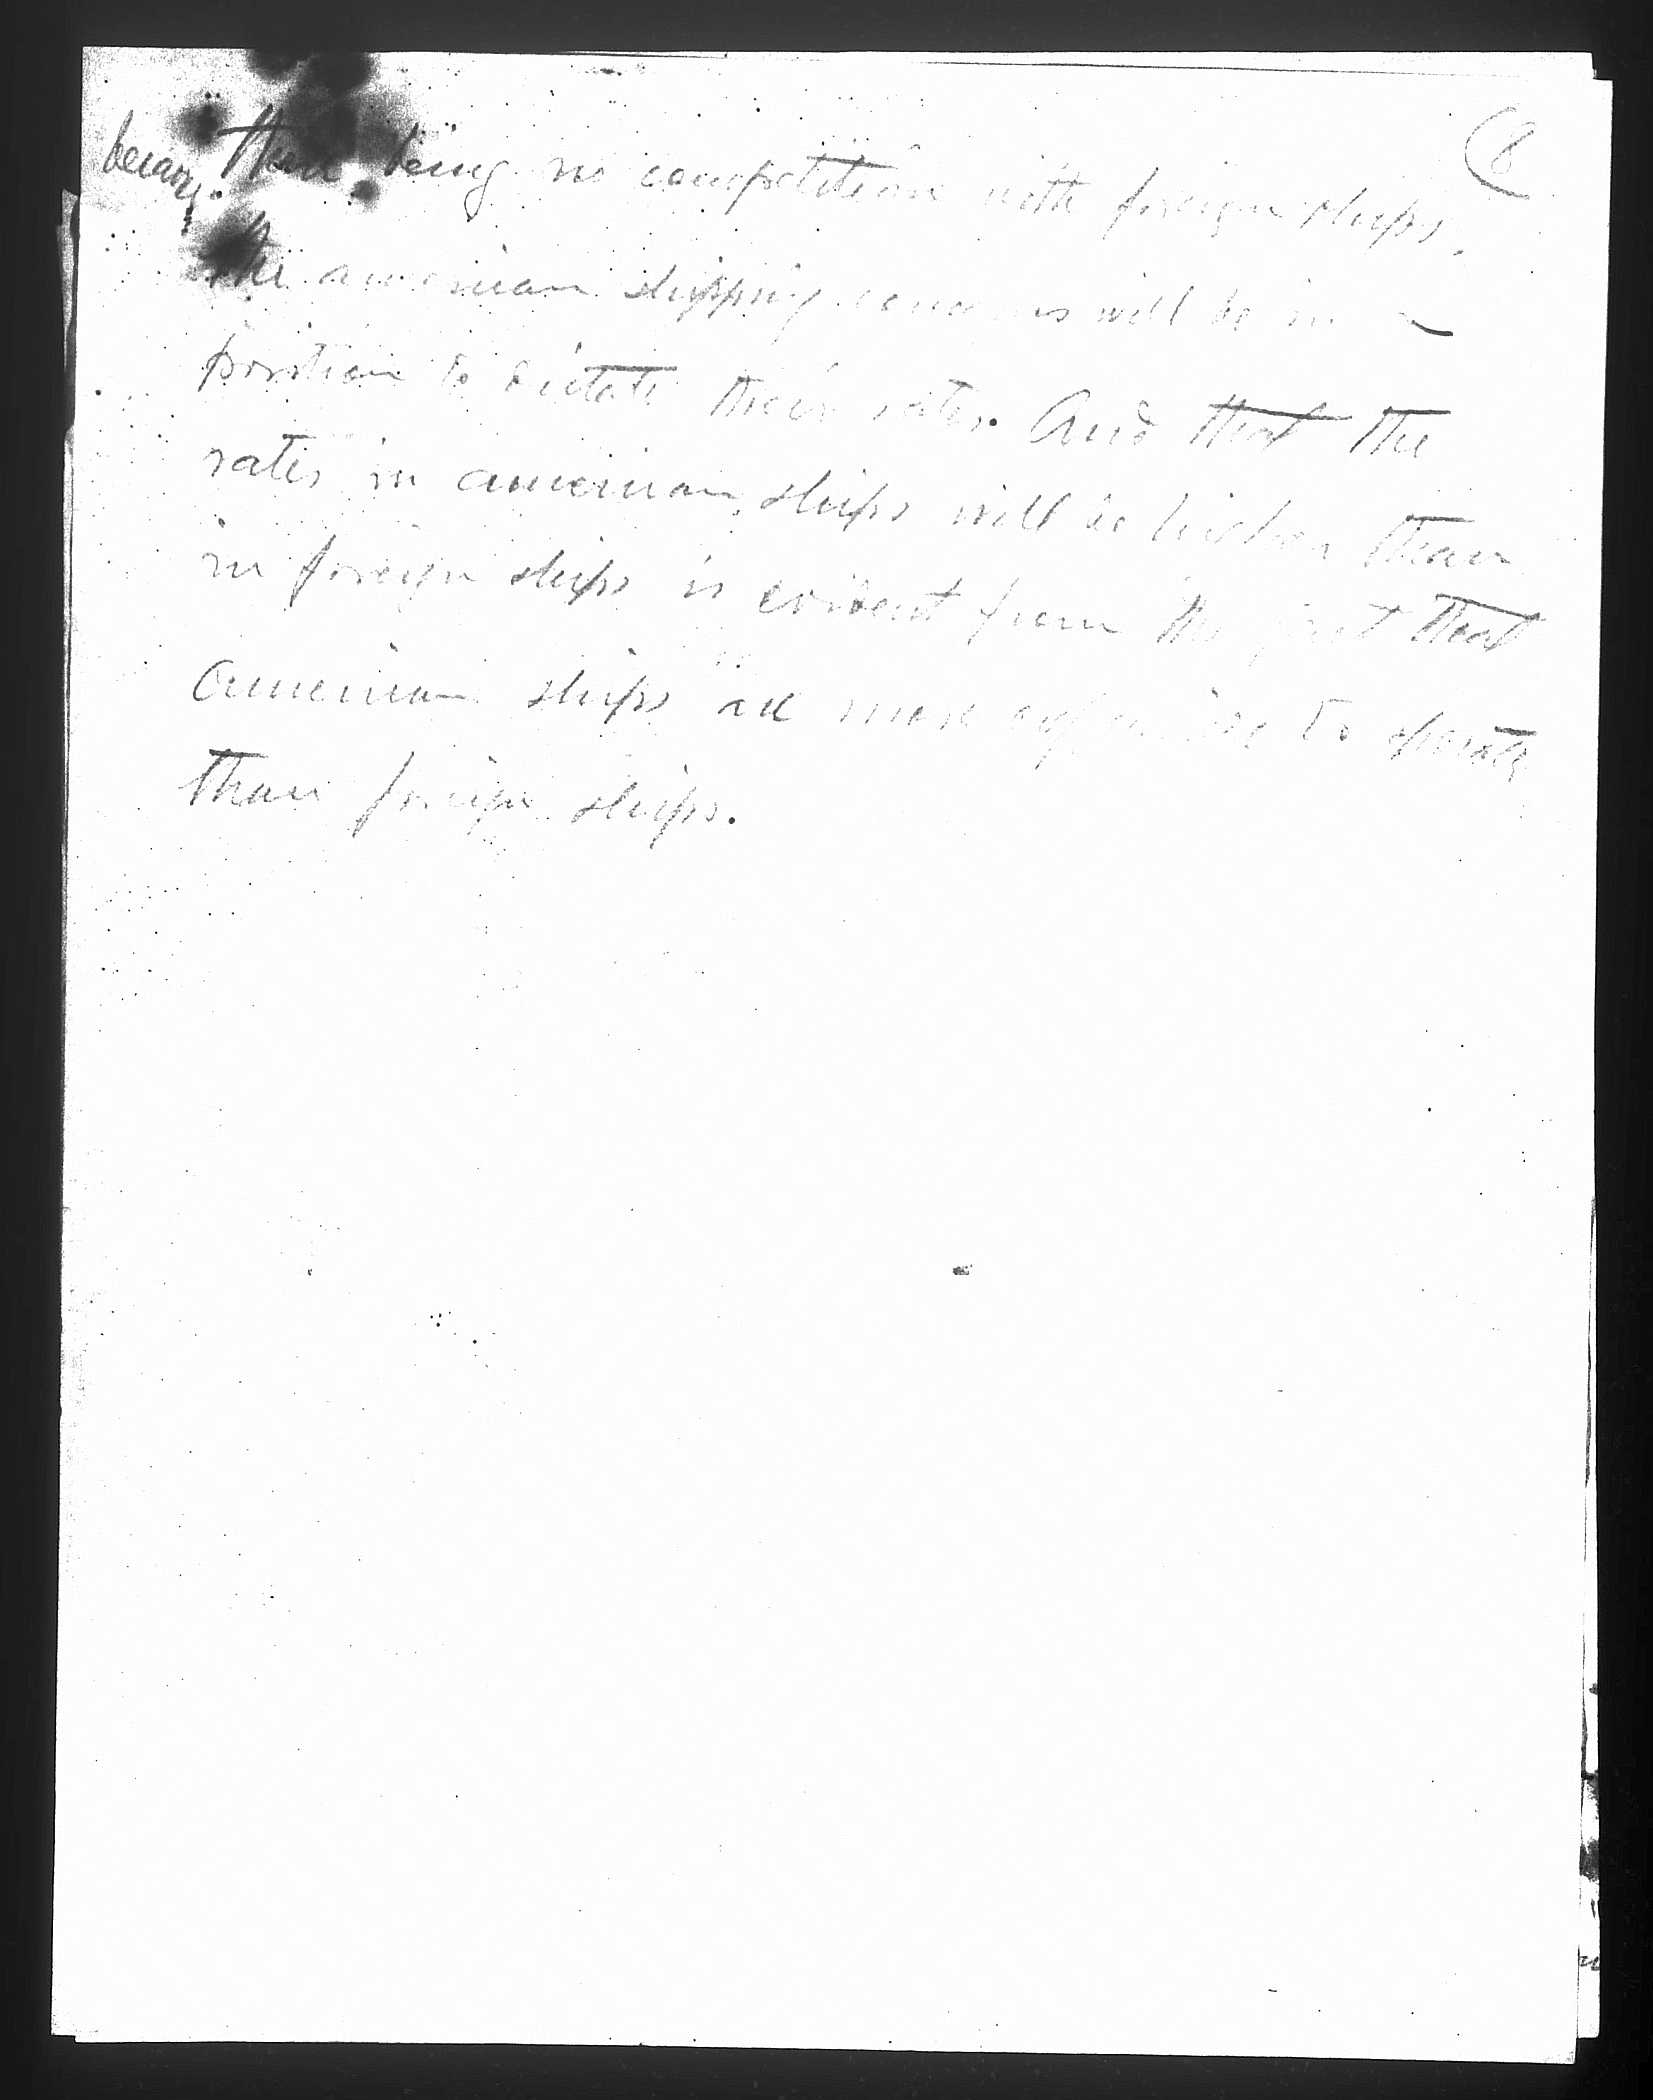 8
because there being no competition with foreign ships,
the american shipping concerns will be in a
position to dictate their rates. And that the
rates in american ships will be higher than
in foreign ships is evident from the fact that
American ships are more expensive to operate
than foreign ships.